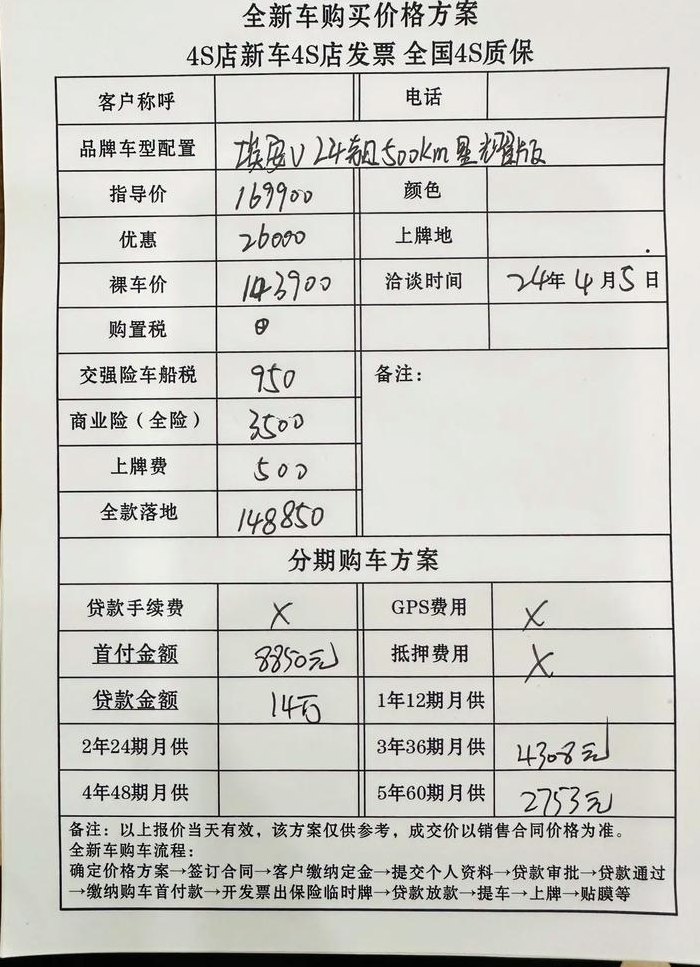 全新车购买价格方案
4S店新车4S店发票 全国4S质保
客户称呼 电话
品牌车型配置 埃安V 24款500km星耀版
指导价 169900 颜色
优惠 26000 上牌地
裸车价 143900 洽谈时间 24年4月5日
购置税 0
交强险车船税 950 备注:
商业险(全险) 3500
上牌费 500
全款落地 148850
分期购车方案
贷款手续费 X GPS费用 X
首付金额 8850元 抵押费用 X
贷款金额 14万 1年12期月供
2年24期月供 3年36期月供 4308元
4年48期月供 5年60期月供 2753元
备注:以上报价当天有效,该方案仅供参考,成交价以销售合同价格为准。
全新车购车流程:
确定价格方案→签订合同→客户缴纳定金→提交个人资料→贷款审批→贷款通过
→缴纳购车首付款→开发票出保险临时牌→贷款放款→提车→上牌→贴膜等